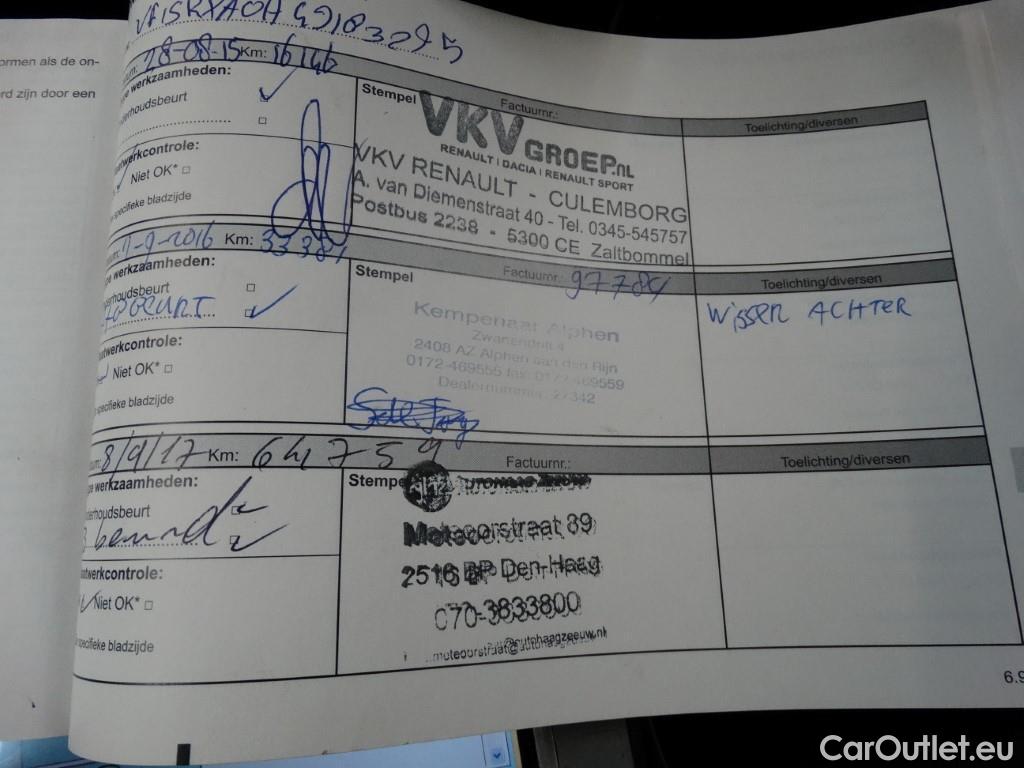 ormen als de on-
rd zijn door een
28-08-15 Km: 16146
werkzaamheden:
Stempel Factuurnr.: Toelichting/diversen
derhoudsbeurt
VKV GROEP.NL
RENAULT | DACIA | RENAULT SPORT
VKV RENAULT - CULEMBORG
A. van Diemenstraat 40 - Tel. 0345-545757
Postbus 2238 - 5300 CE Zaltbommel
atwerkcontrole:
Niet OK*
specifieke bladzijde
9-2016 Km: 33384
werkzaamheden:
Stempel Factuurnr.: 97784 Toelichting/diversen
derhoudsbeurt
WISSEN ACHTER
Kempenaar Alphen
2408 AZ Alphen aan den Rijn
0172-469555 fax: 0172-469559
Dealernummer: 27342
atwerkcontrole:
Niet OK*
specifieke bladzijde
8/9/17 Km: 64759 Factuurnr.: Toelichting/diversen
werkzaamheden:
Stempel
derhoudsbeurt
Meteoorstraat 89
2516 BP Den-Haag
070-3833800
meteoorstraat@autohaagzeeuw.nl
atwerkcontrole:
Niet OK*
specifieke bladzijde
6.9
CarOutlet.eu